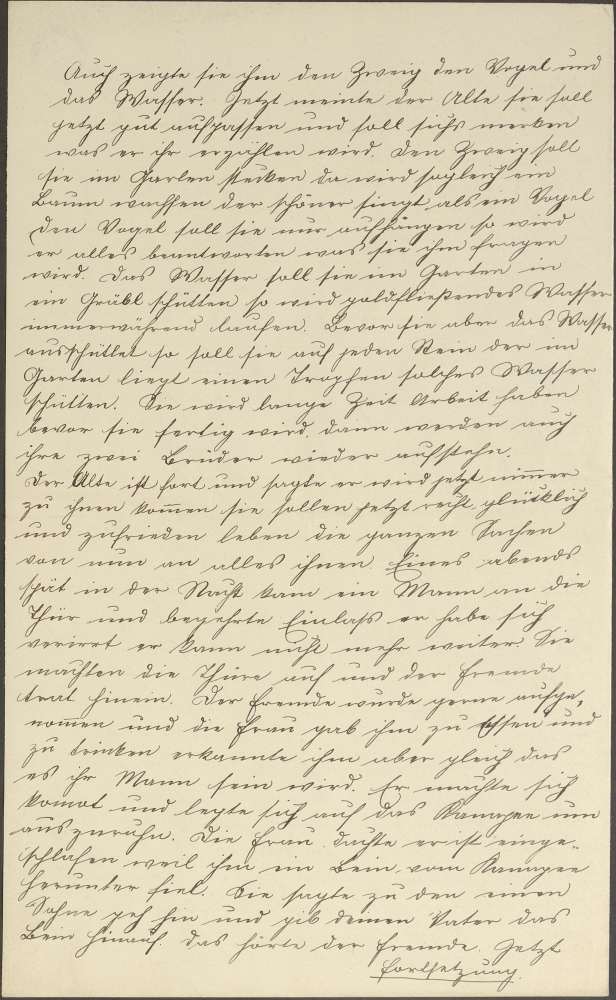 Auch zeigte sie ihm den Zweig den Vogel und
das Wasser. Jetzt meinte der Alte sie soll
jetzt gut aufpassen und soll sichs merken
was er ihr erzählen wird. Den Zweig soll
sie im Garten stecken da wird sogleich ein
Baum wachsen der schöner singt als ein Vogel
Den Vogel soll sie nur aufhängen so wird
er alles beantworten was sie ihm fragen
wird. Das Wasser soll sie im Garten in
ein Grübl schütten so wird goldfließendes Wasser
immerwährend laufen. Bevor sie aber das Wasser
ausschüttet so soll sie auf jeden Stein der im
Garten liegt einen Tropfen solches Wasser
schütten. Sie wird lange Zeit Arbeit haben
bevor sie fertig wird, dann werden auch
ihre zwei Brüder wieder aufstehn.
Der Alte ist fort und sagte er wird jetzt nim̅er
zu ihnen kom̅en sie sollen jetzt recht glücklich
und zufrieden leben die ganzen Sachen
von nun an alles ihnen. Eines abends
spät in der Nacht kam ein Mann an die
Thür und begehrte Einlaß er habe sich
verirrt er kann nicht mehr weiter. Sie
machten die Thüre auf und der Fremde
trat hinein. Der Fremde wurde gerne aufge-
nom̅en und die Frau gab ihm zu Essen und
zu trinken erkannte ihm aber gleich das
es ihr Mann sein wird. Er machte sich
komot und legte sich auf das Kanapee um
auszuruhn. Die Frau dachte er ist einge-
schlafen weil ihm ein Bein vom Kanapee
herunter fiel. Sie sagte zu den einen
Sohne geh hin und gib deinen Vater das
Bein hinauf, das hörte der Fremde. Jetzt
Fortsetzung.